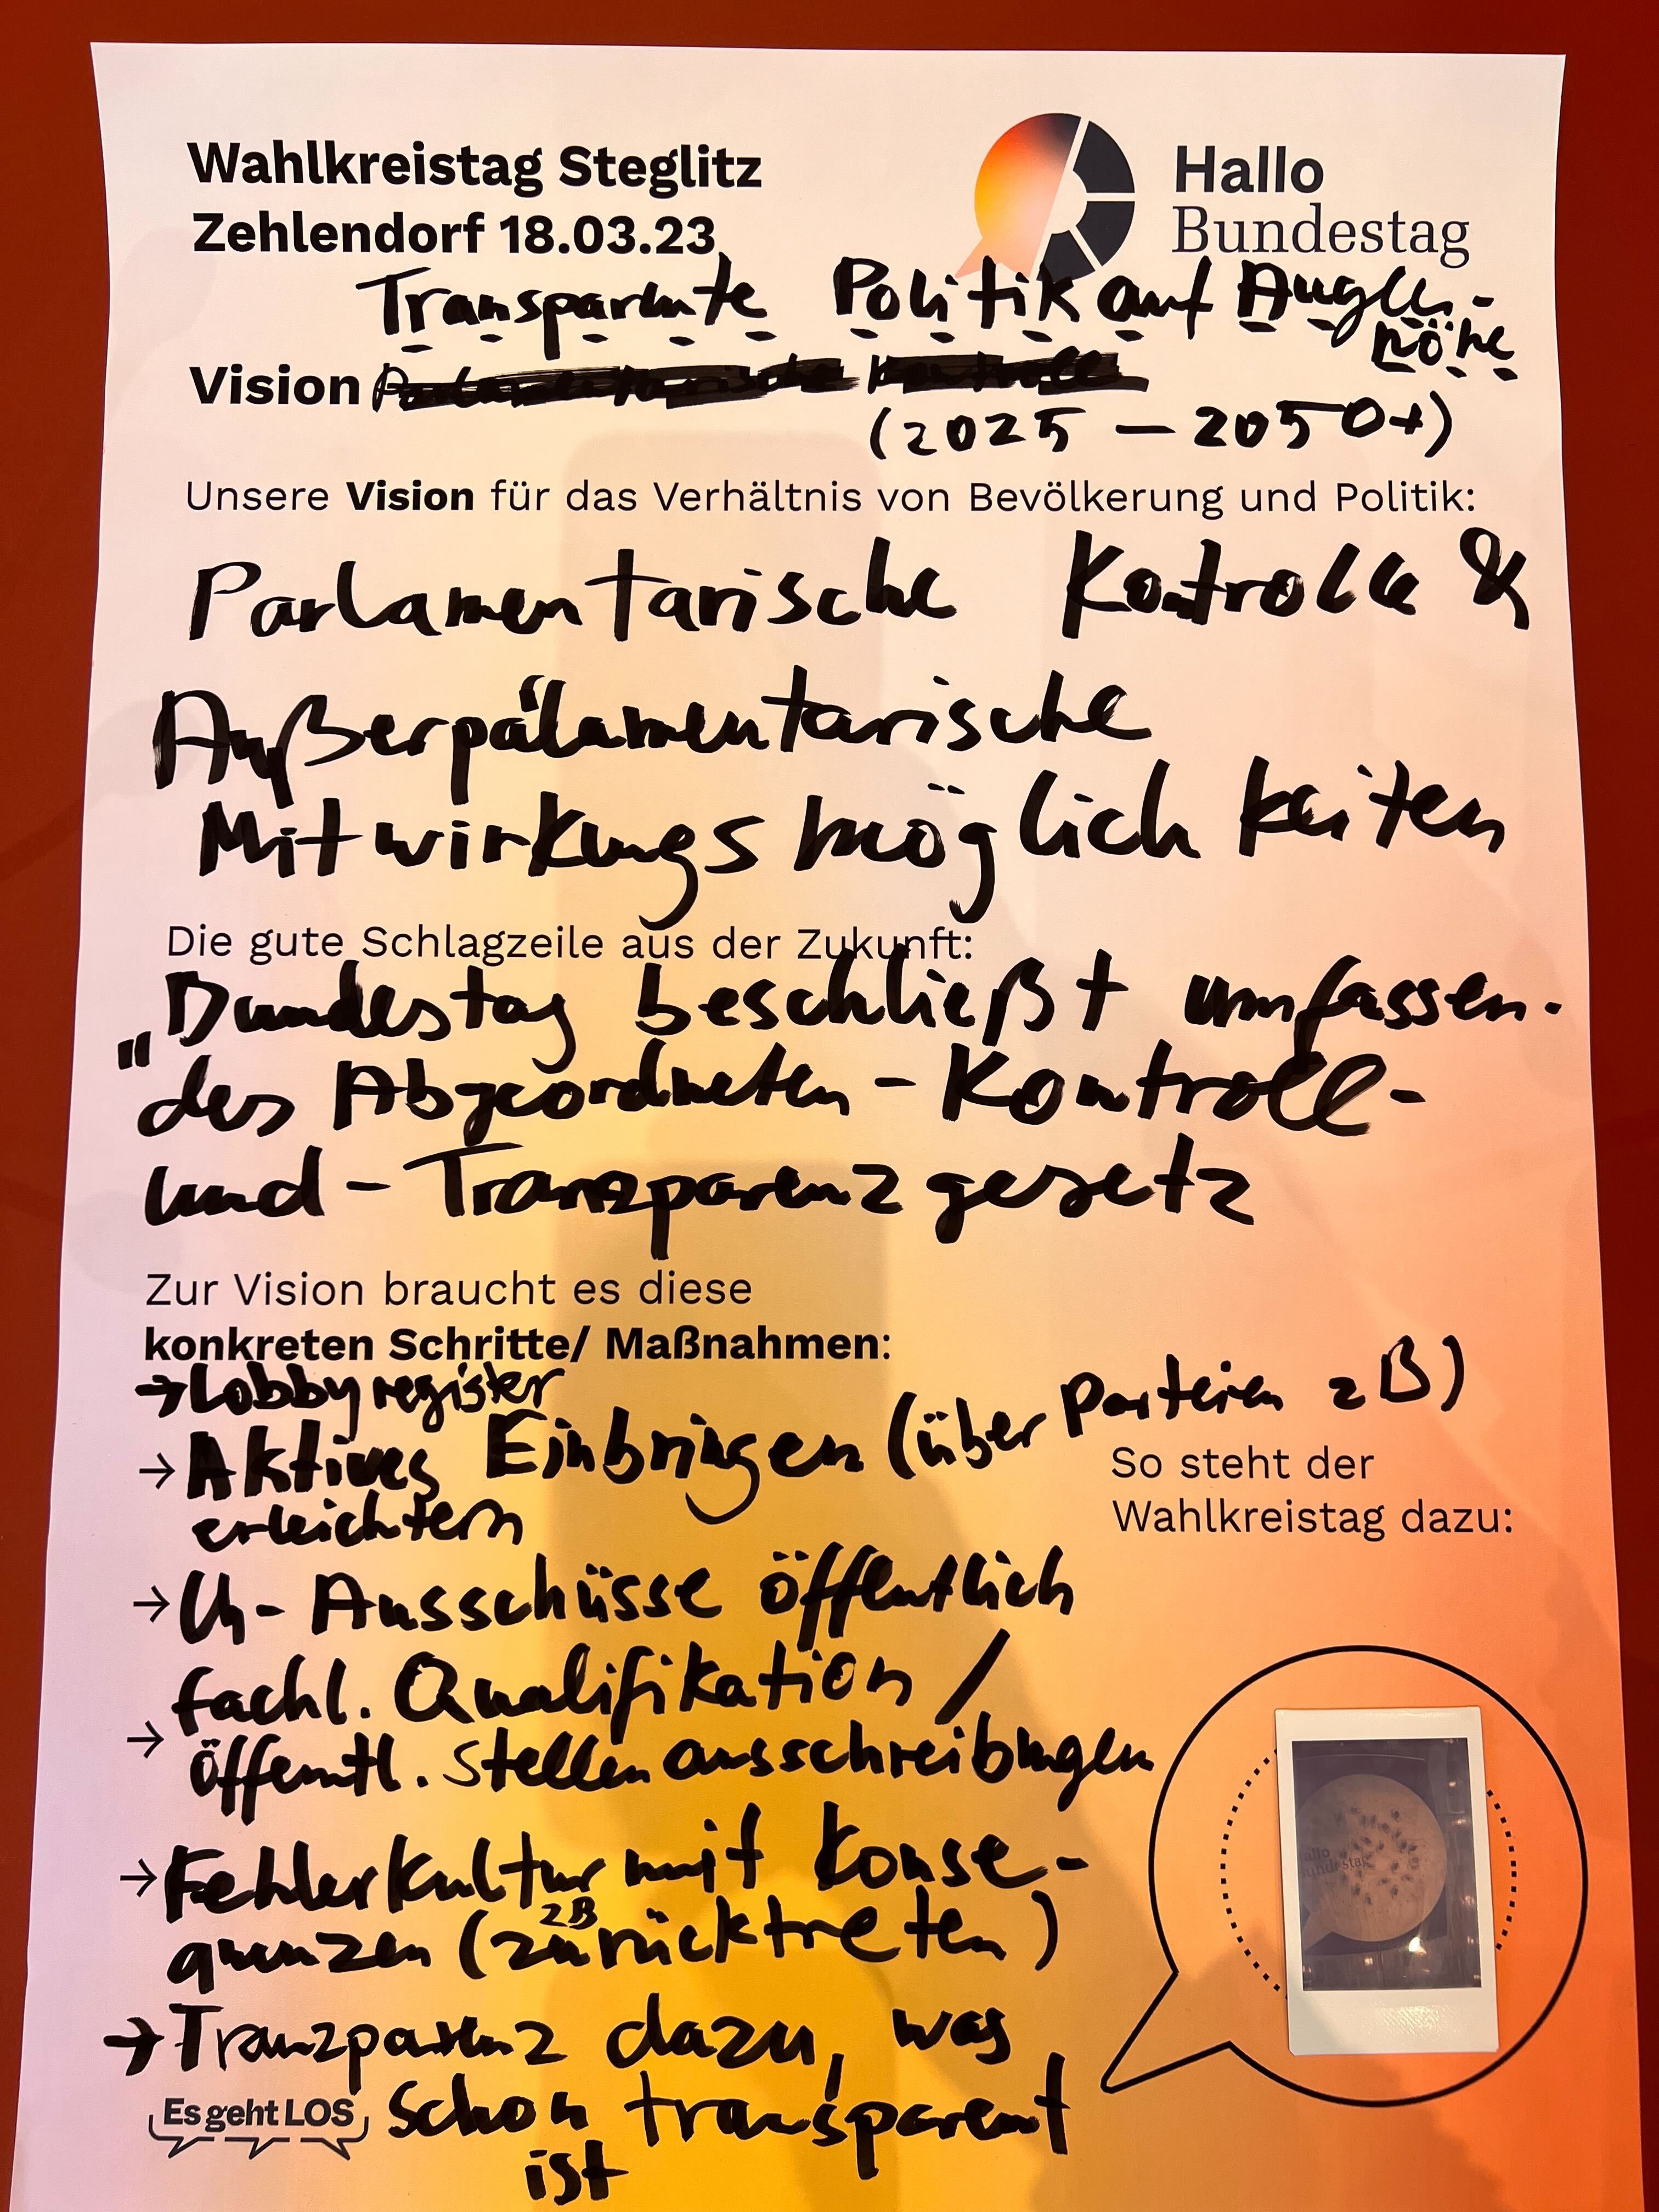 Wahlkreistag Steglitz
Zehlendorf 18.03.23
Hallo
Bundestag
Transparente Politik auf Augen-
höhe
Vision Parlamentarische Kontrolle
(2025 – 2050+)
Unsere Vision für das Verhältnis von Bevölkerung und Politik:
Parlamentarische Kontrolle &
Außerpälamentarische
Mitwirkungsmöglichkeiten
Die gute Schlagzeile aus der Zukunft:
"Bundestag beschließt umfassen-
des Abgeordneten-Kontroll-
und-Tranzparenzgesetz
Zur Vision braucht es diese
konkreten Schritte/ Maßnahmen:
→ Lobbyregister
→ Aktives Einbringen (über Parteien zB)
erleichtern
So steht der
Wahlkreistag dazu:
→ U-Ausschüsse öffentlich
fachl. Qualifikation /
→ öffentl. Stellenausschreibungen
→ Fehlerkultur mit Konse-
quenzen (zB zurücktreten)
→ Tranzparenz dazu, was
schon transparent
ist
Es geht LOS